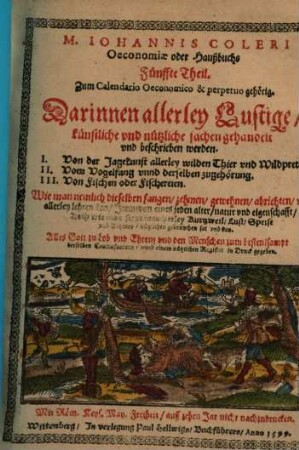 M. IOHANNIS COLERI
Oeconomiæ oder Haußbuchs
Fünffte Theil.
Zum Calendario Oeconomico & perpetuo gehörig.
Darinnen allerley Lustige/
künstliche vnd nützliche sachen gehandelt
vnd beschrieben werden.
I. Von der Jagekunst allerley wilden Thier vnd Wildpret
II. Vom Vogelfang vnnd derselben zugehörung.
III. Von Fischen oder Fischereien.
Wie man nemlich dieselben fangen/ zehmen/ gewehnen/ abrichten/
allerley lehren von eines jeden alter/ natur vnd eigenschafft/
Kurtzweil/ Lust/ Speise
Alles Gott zu lob vnd Ehren/ vnd den Menschen zum besten sampt
in Druck gegeben.
Mit Röm. Keys. May. Freiheit/ auff zehen Jar nicht nachzudrucken.
Wittenberg/ In verlegung Paul Hellwigs/ Buchführers/ Anno 1599.